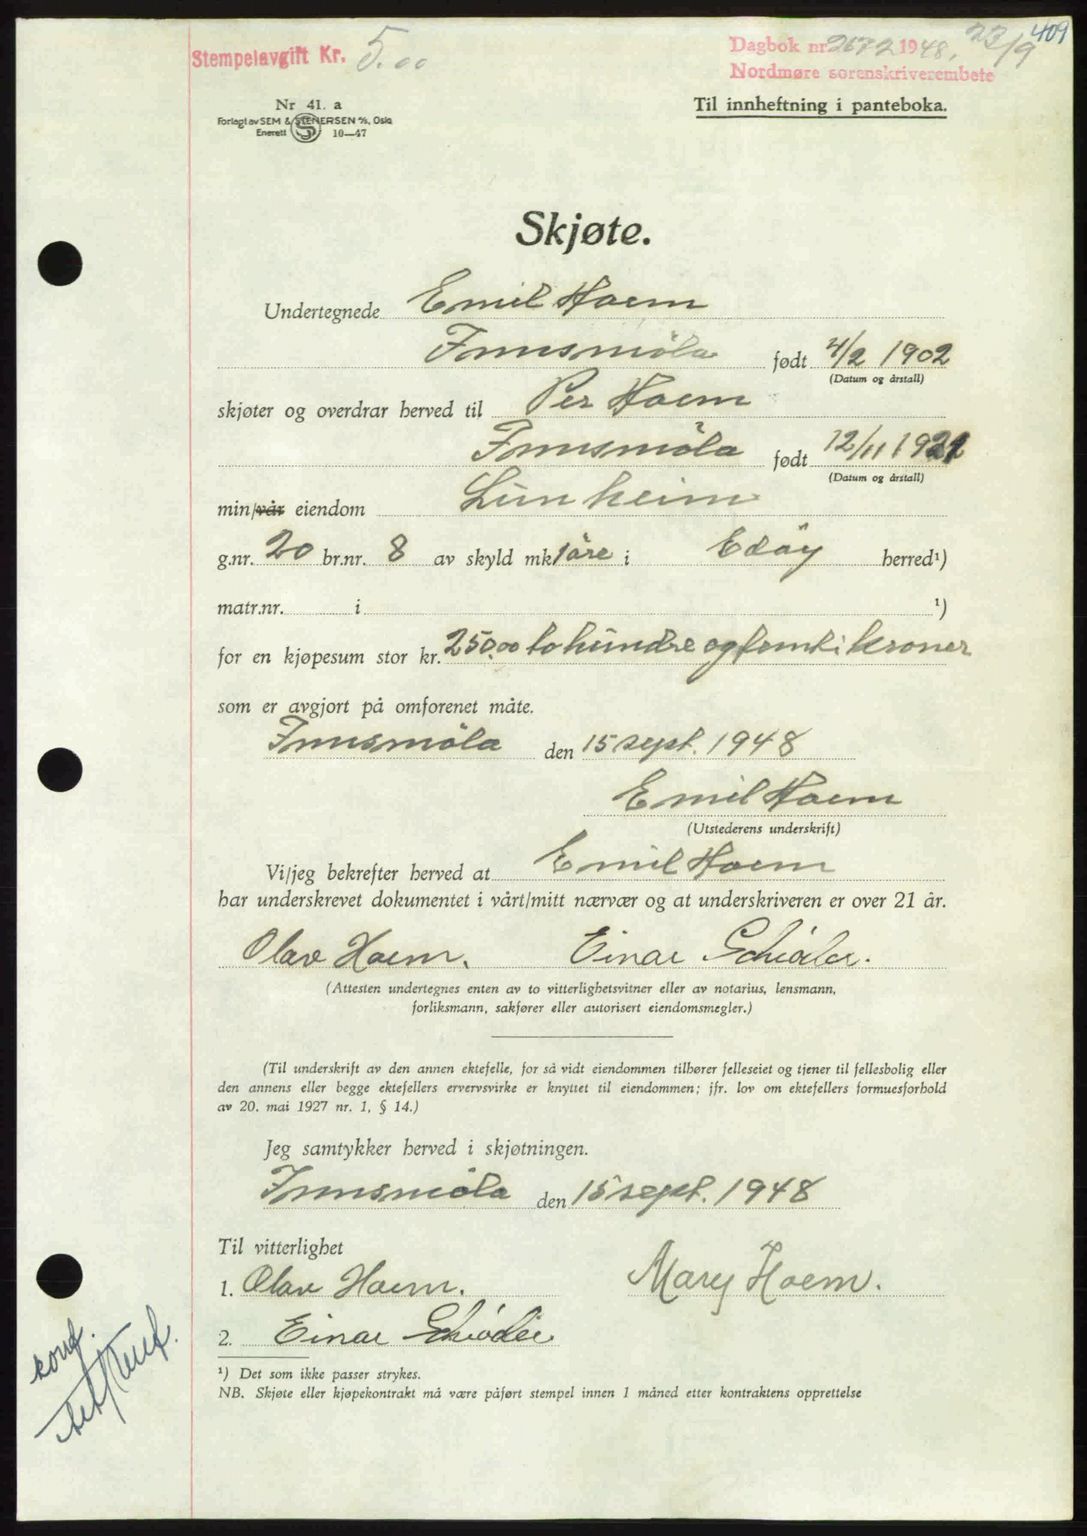 409
Stempelavgift Kr. 5.00
Dagbok nr 2672 1948, 23/9
Nordmøre sorenskriverembete
Nr 41. a
Forlagt av SEM & STENERSEN A/S, Oslo
Enerett S 10—47
Til innheftning i panteboka.
Skjøte.
Undertegnede Emil Hoem
Innsmöla født 4/2 1902
(Datum og årstall)
skjøter og overdrar herved til Per Hoem
Innsmöla født 12/11 1921
(Datum og årstall)
min/vår eiendom Lünheim
g.nr. 20 br.nr. 8 av skyld mk 1 öre i Edöy herred¹)
matr.nr. i ¹)
for en kjøpesum stor kr. 250.00 to hündre og femti kroner
som er avgjort på omforenet måte.
Innsmöla den 15 sept. 1948
Emil Hoem
(Utstederens underskrift)
Vi/jeg bekrefter herved at Emil Hoem
har underskrevet dokumentet i vårt/mitt nærvær og at underskriveren er over 21 år.
Olav Hoem. Einar Schiöler.
(Attesten undertegnes enten av to vitterlighetsvitner eller av notarius, lensmann,
forliksmann, sakfører eller autorisert eiendomsmegler.)
(Til underskrift av den annen ektefelle, for så vidt eiendommen tilhører felleseiet og tjener til fellesbolig eller
den annens eller begge ektefellers ervervsvirke er knyttet til eiendommen; jfr. lov om ektefellers formuesforhold
av 20. mai 1927 nr. 1, § 14.)
Jeg samtykker herved i skjøtningen.
Innsmöla den 15 sept. 1948
Til vitterlighet
1. Olav Hoem. Mary Hoem.
2. Einar Schiöler
¹) Det som ikke passer strykes.
NB. Skjøte eller kjøpekontrakt må være påført stempel innen 1 måned etter kontraktens opprettelse
konf.